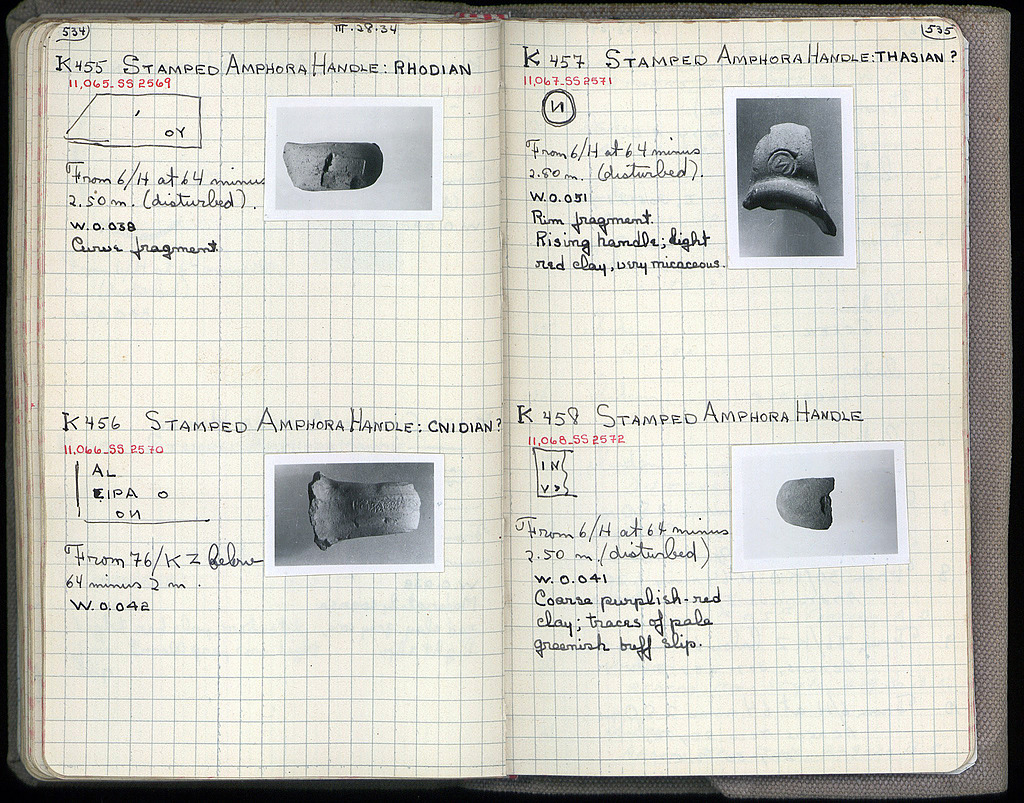 534
III·28·34
K 455 STAMPED AMPHORA HANDLE: RHODIAN
11,065_SS 2569
OY
From 6/H at 64 minus
2.50 m. (disturbed).
W. 0.038
Curve fragment.
K 456 STAMPED AMPHORA HANDLE: CNIDIAN?
11,066_SS 2570
AL
EIPA O
OИ
From 76/KZ below
64 minus 2 m.
W. 0.042
535
K 457 STAMPED AMPHORA HANDLE: THASIAN ?
11,067_SS 2571
И
From 6/H at 64 minus
2.80 m. (disturbed).
W. 0.051
Rim fragment.
Rising handle; light
red clay, very micaceous.
K 458 STAMPED AMPHORA HANDLE
11,068_SS 2572
IN
From 6/H at 64 minus
2.50 m. (disturbed)
W. 0.041
Coarse purplish-red
clay; traces of pale
greenish buff slip.